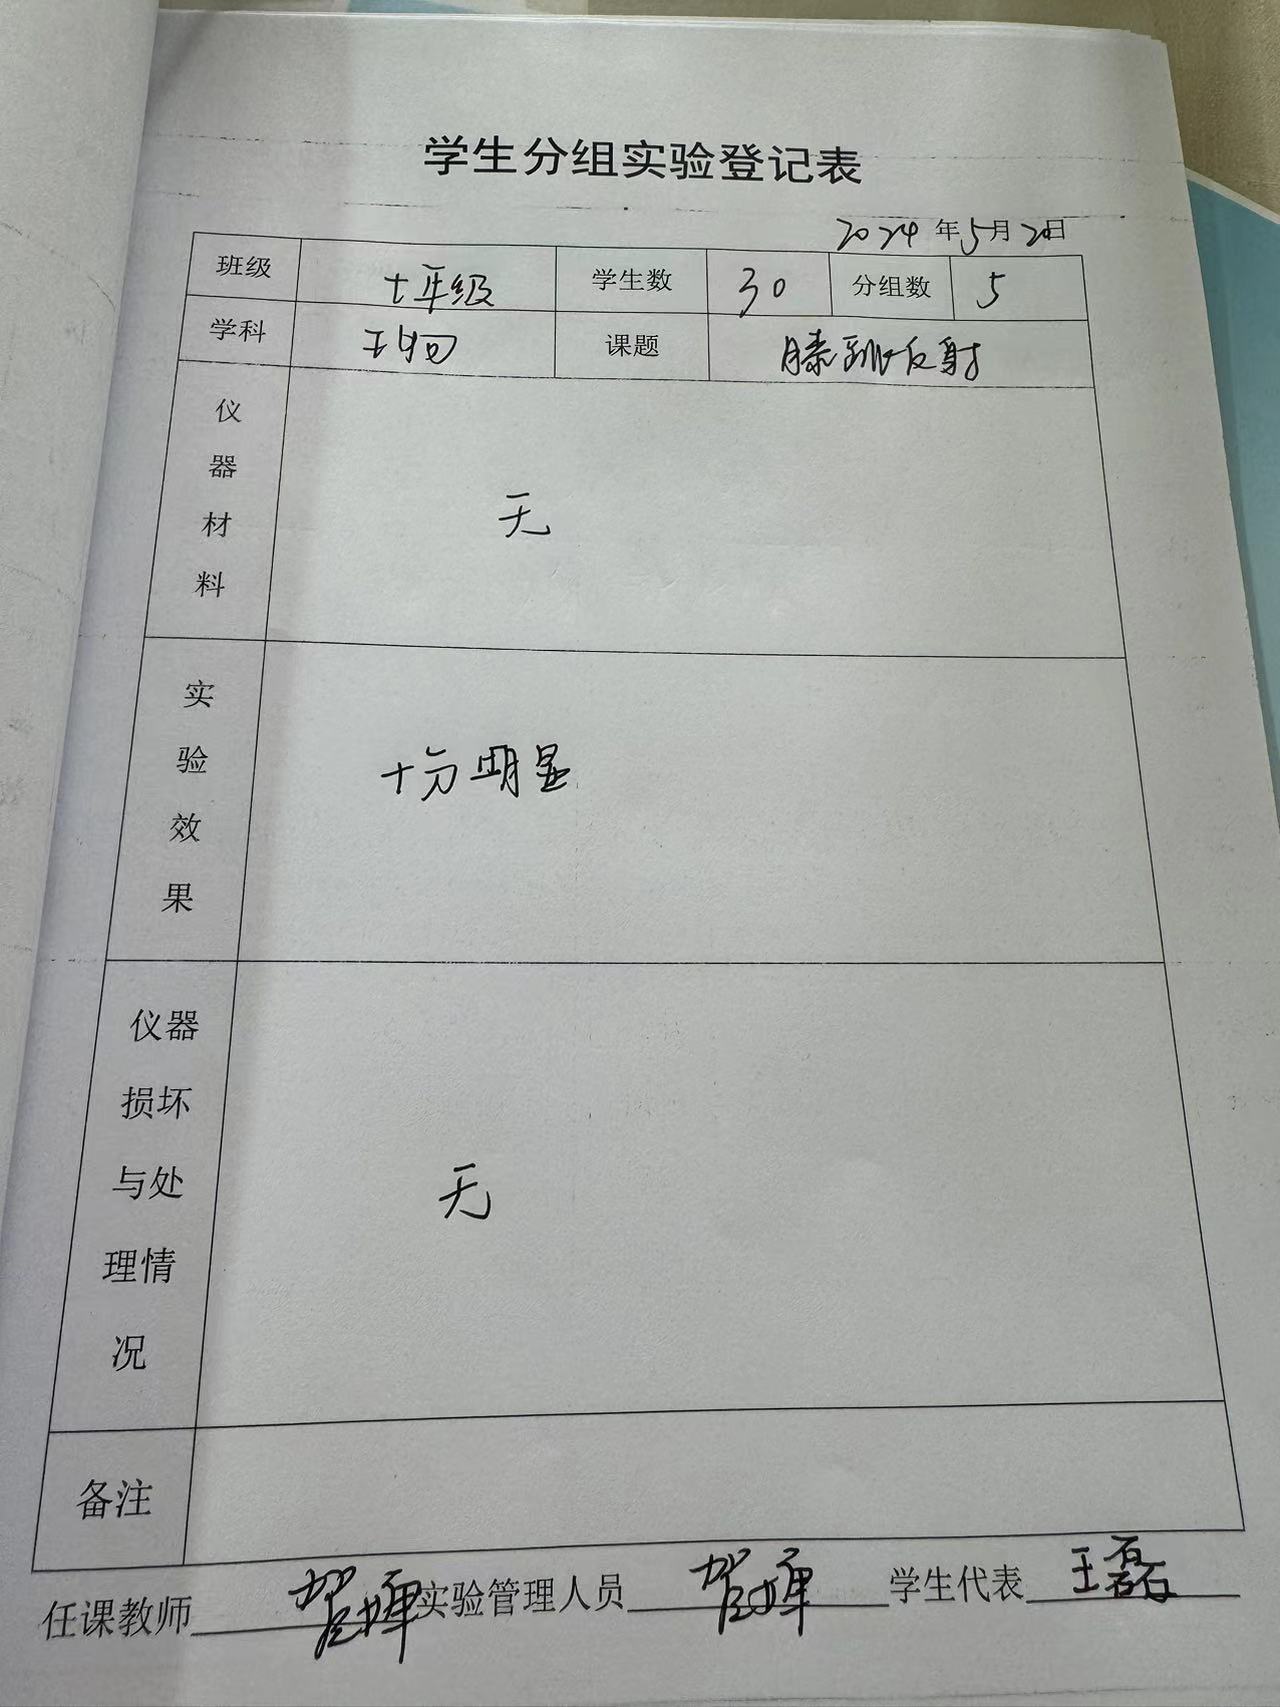 学生分组实验登记表
2024年5月20日
班级 七年级 学生数 30 分组数 5
学科 生物 课题 膝跳反射
仪器材料 无
实验效果 十分明显
仪器损坏与处理情况 无
备注
任课教师 贺 实验管理人员 贺 学生代表 王磊